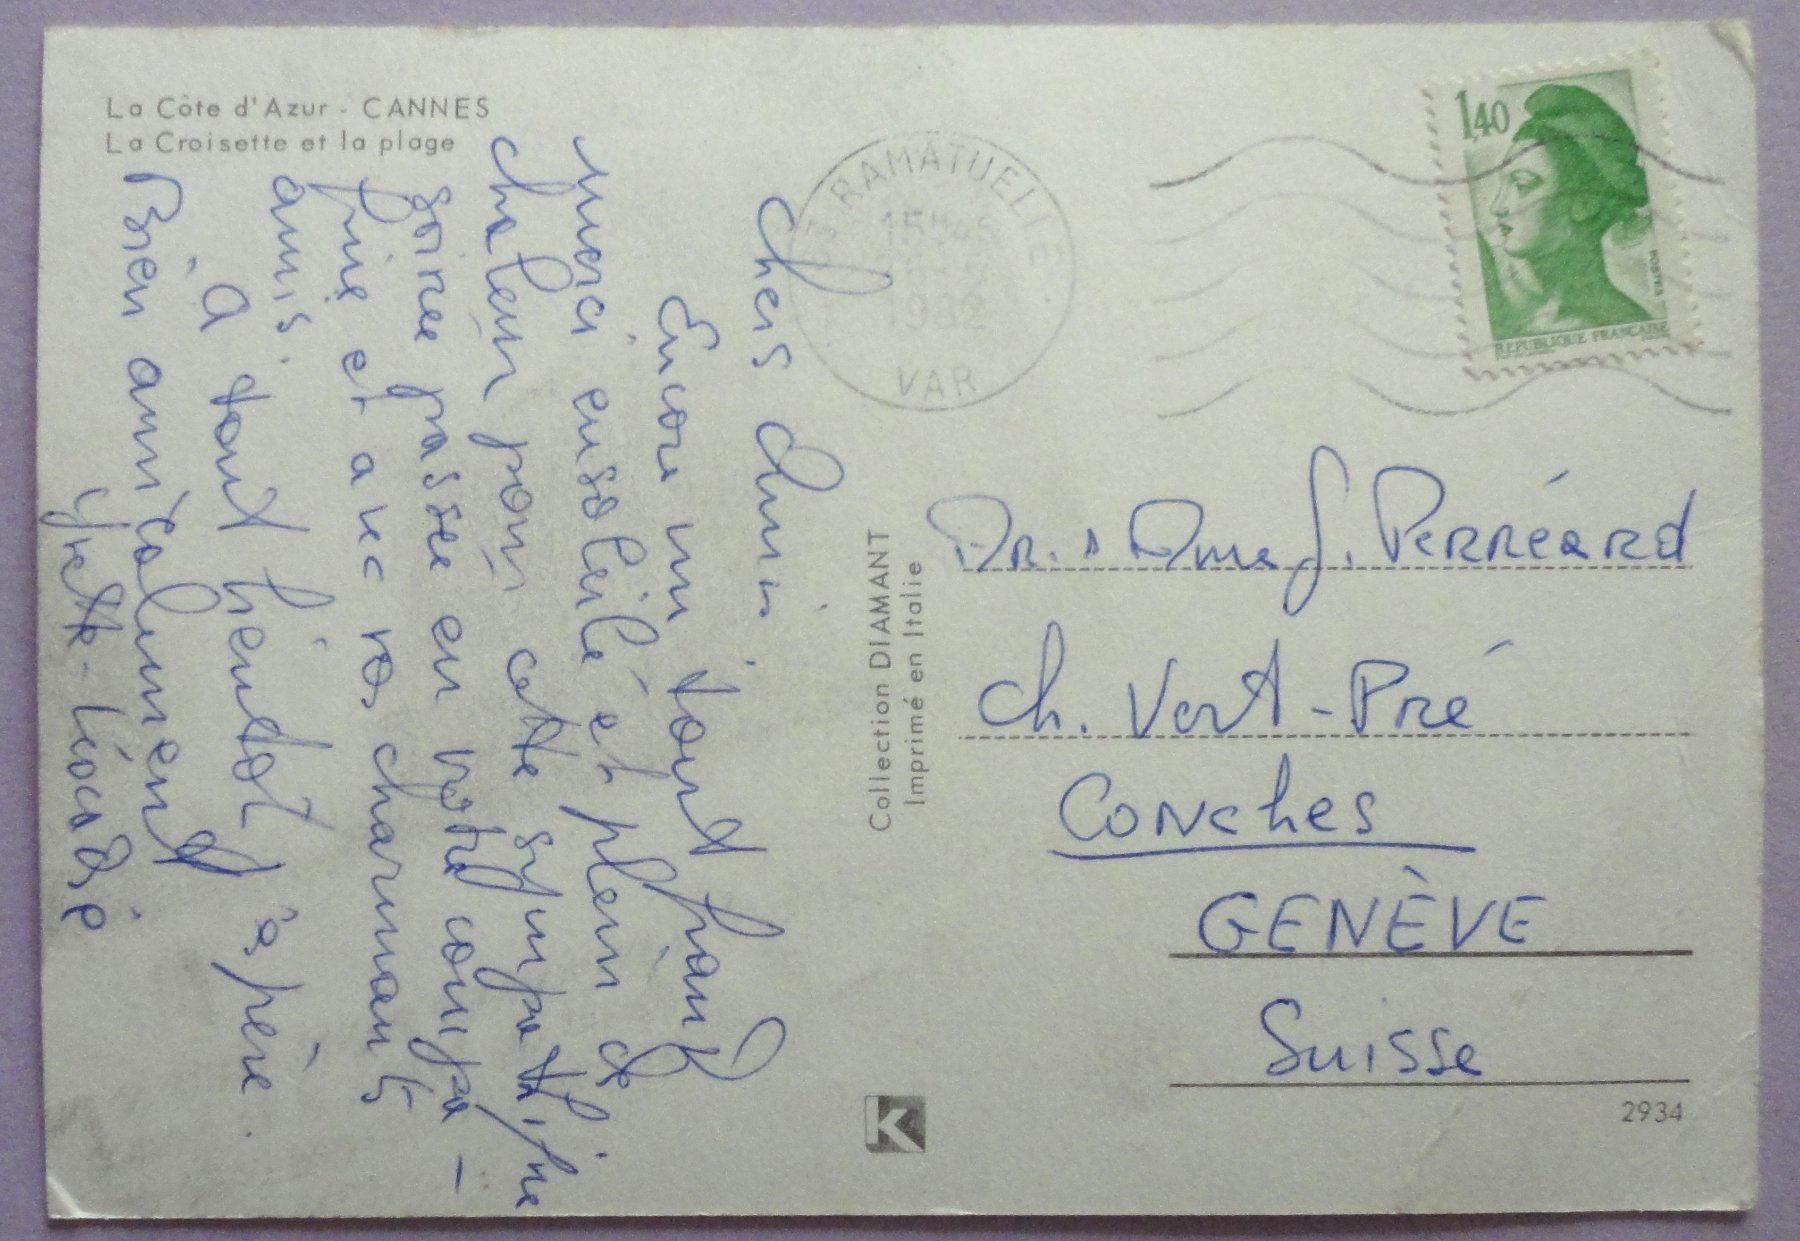 La Côte d'Azur - CANNES
La Croisette et la plage
Chers Amis,
Encore un tout grand
merci ensoleillé et plein de
chaleur pour cette sympathique
soirée passée en votre compa-
gnie et avec vos charmants
amis.
A tout bientôt j'espère.
Bien amicalement
Yvette-Léocadie
RAMATUELLE
15H45
1982
VAR
1,40
REPUBLIQUE FRANÇAISE
Collection DIAMANT
Imprimé en Italie
Dr. & Mme J. Perréard
Ch. Vert-Pré
Conches
GENÈVE
Suisse
K
2934